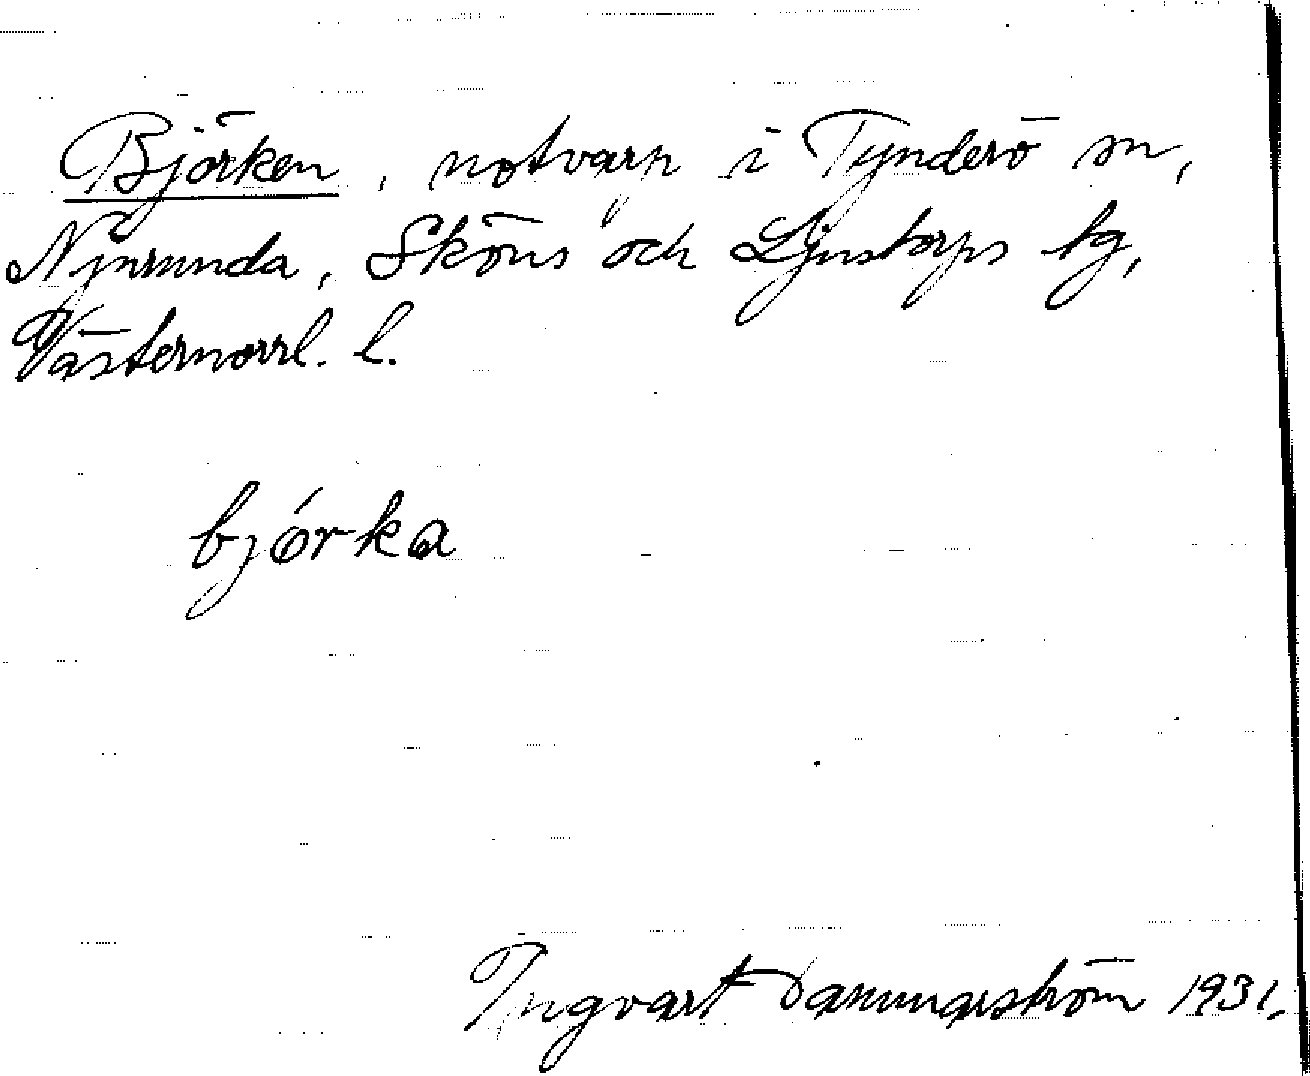 Björken, notvarp i Tynderö sn,
Njurunda, Sköns och Ljustorps tg,
Västernorrl. l.
björka
Ingvart 1931.